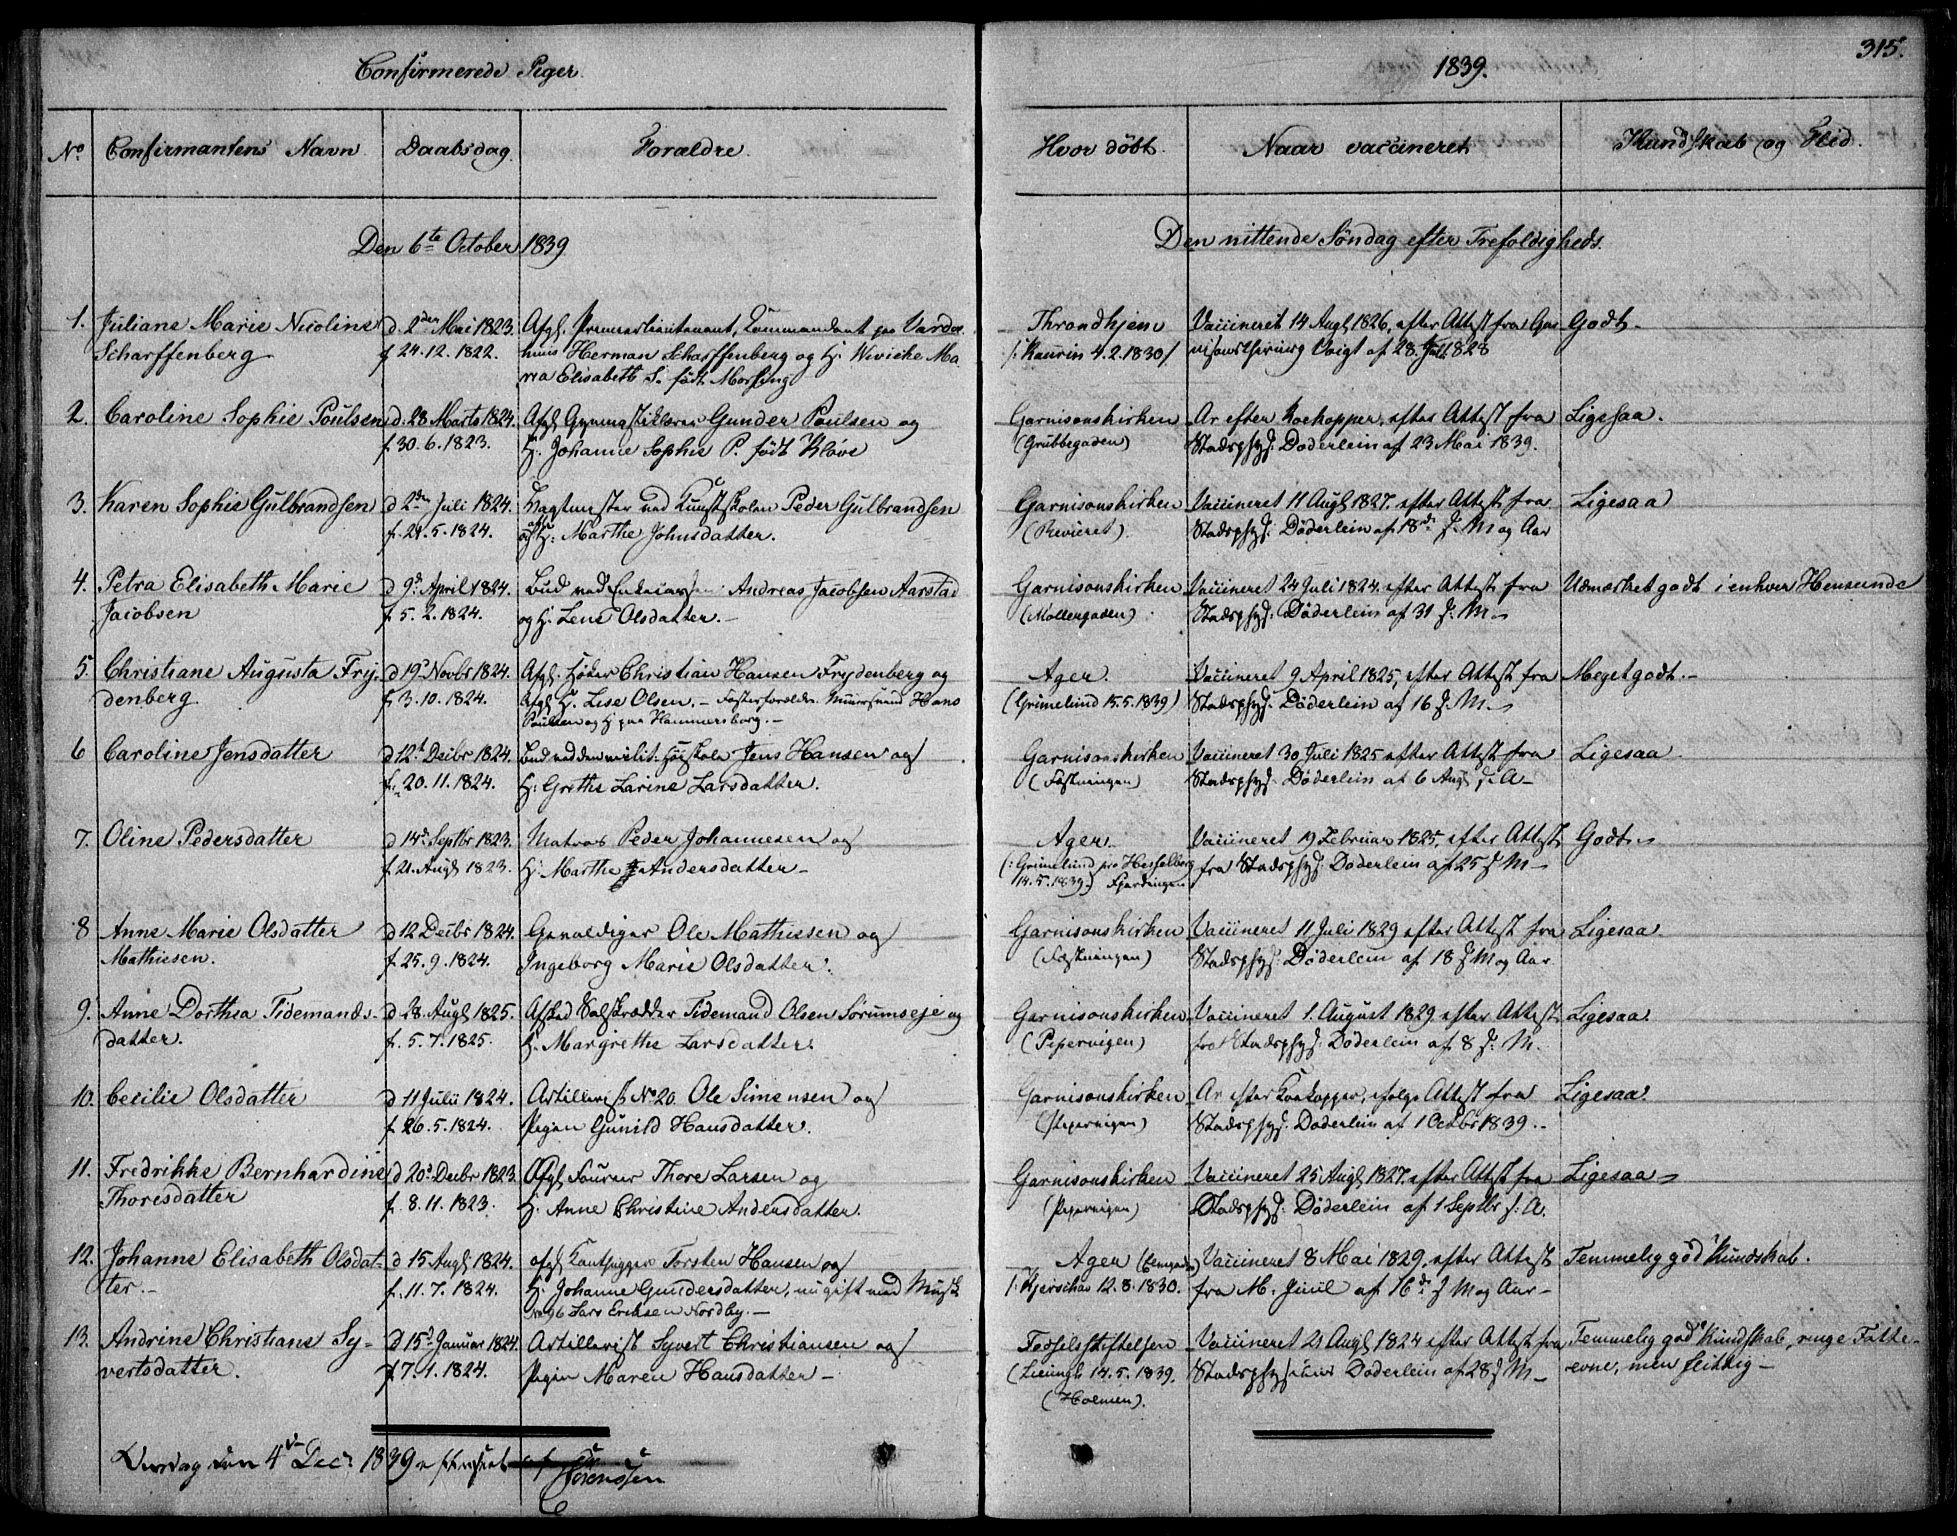 Confirmerede Piger.
No Confirmantens Navn Daabsdag. Forældre.
Den 6te October 1839
1. Juliane Marie Nicoline d. 2den Mai 1823. Afgl. Premierlieutenant, Commandant paa Vardøe
Scharffenberg f 24.12.1822. huus Herman Scharffenberg og H. Wivicke Ma
ria Elisabeth S. født Morsing
2. Caroline Sophie Poulsen d. 28 Marts 1824. Afgl. Gymnastiklærer Gunder Poulsen og
f. 30.6.1823. H. Johanne Sophie P. født Kløve
3. Karen Sophie Gulbrandsen d 2den Juli 1824. Vagtmester ved Kunstskolen Peder Gulbrandsen
f. 29.5.1824. og H: Marthe Johnsdatter.
4. Petra Elisabeth Marie d 9d. April 1824. Bud ved Andreas Jacobsen Aarstad
Jacobsen f. 5.2.1824. og H. Lene Olsdatter.-
5. Christiane Augusta Fry- d 19d Novbr 1824. Afgl. Christian Hansen Frydenberg og
denberg f. 3.10.1824. Afgl H. Lise Olsen. - Fosterforældre. Muursvend Hans
Poulsen og H paa Hammersborg.-
6 Caroline Jensdatter d 12t Decbr 1824. Bud ved den milit: Høiskole Jens Hansen og
f. 20.11.1824. H: Grethe Larine Larsdatter.
7. Oline Pedersdatter d 14d Septbr 1823. Matros Peder Johannesen og
f. 21. Augl 1823. H: Marthe Andersdatter-
8 Anne Marie Olsdatter d 12 Decbr 1824. Gevaldiger Ole Mathiesen og
Mathiesen. f. 25.9.1824. Ingeborg Marie Olsdatter.
9. Anne Dorthea Tidemands- d 28. Augl 1825. Afsked Tidemand Olsen Sørumseje og
datter. f. 5.7.1825. H. Margrethe Larsdatter.
10. Cecilie Olsdatter d 11 Julii 1824. Artillerist No 20. Ole Simensen og
f. 26.5.1824. Pigen Gunild Hansdatter.
11. Fredrikke Bernhardine d 20d Decbr 1823. Afgl Fourer Thore Larsen og
Thoresdatter f. 8.11.1823. H. Anne Christine Andersdatter.
12. Johanne Elisabeth Olsdat- d 15 Augl 1824. afgl. Torsten Hansen og
ter.- f. 11.7.1824. H. Johanne Gundersdatter, nu gift med Musk.
Lars Eriksen Nordby.-
13. Andrine Christiane Sy- d 15d Januar 1824. Artillerist Syvert Christiansen og
vertsdatter. f 7.1.1824. Pigen Maren Hansdatter-
den 4de Decr 1839 af
Sørenssen
1839. 315.
Hvor døbt. Naar vaccineret. Kundskab og Flid.
Den nittende Søndag efter Trefoldigheds.
Throndhjem Vaccineret 14 Augl 1826, efter Attest fra Gar Godt-
(: Kaurin 4.2.1830) Voigt af 28. Juli 1828
Garnisonskirken Ar efter Koekopper, efter Attest fra Ligesaa.
(Grubbegaden) Stadsphys: Døderlein af 23 Mai 1839.
Garnisonskirken Vaccineret 11 Augl 1827. efter Attest fra Ligesaa
(Revieret) Stadsphys: Døderlein af 18de s: M og Aar
Garnisonskirken Vaccineret 24 Juli 1824. efter Attest fra Udmærket godt i enhver Henseende
(Møllergaden) Stadsphys: Døderlein af 31 s: M-
Ager. Vaccineret 9 April 1825, efter Attest fra Meget godt.-
(Grimelund 15.5.1839) Stadsphys: Døderlein af 16 s. M.-
Garnisonskirken Vaccineret 30 Juli 1825 efter Attest fra Ligesaa
(Fæstningen) Stadsphys: Døderlein af 6 Augl s. A-
Ager. Vaccineret 19 Februar 1825, efter Attest Godt-
(: Grimelund pro Hesselberg fra Stadsphys: Døderlein af 25 s M-
14.5.1839.) Fjerdingen
Garnisonskirken Vaccineret 11 Juli 1829 efter Attest fra Ligesaa.
(Fæstningen) Stadsphys: Døderlein af 18 s M og Aar.
Garnisonskirken Vaccineret 1. August 1829 efter Attest Ligesaa.
(Pipervigen) fra Stadsphys: Døderlein af 8 s: M.
Garnisonskirken Ar efter Koekopper, ifølge Attest fra Ligesaa.
(Pipervigen) Stadsphys: Døderlein af 1 Octbr 1839.-
Garnisonskirken Vaccineret 25 Augl 1827. efter Attest fra Ligesaa-
(Pipervigen) Stadsphys: Døderlein af 1 Septbr s: A.
Ager Vaccineret 8 Mai 1829, efter Attest Temmelig god Kundskab.
(: Kjerschow 12.8.1830. fra M. Juul af 16de s M og Aar-
Fødselsstiftelsen Vaccineret 21 Augl 1824 efter Attest fra Temmelig god Kundskab, ringe Fatte-
14.5.1839. Stadsphysicus Døderlein af 28 s M- evne, men flittig-
(Holmen).